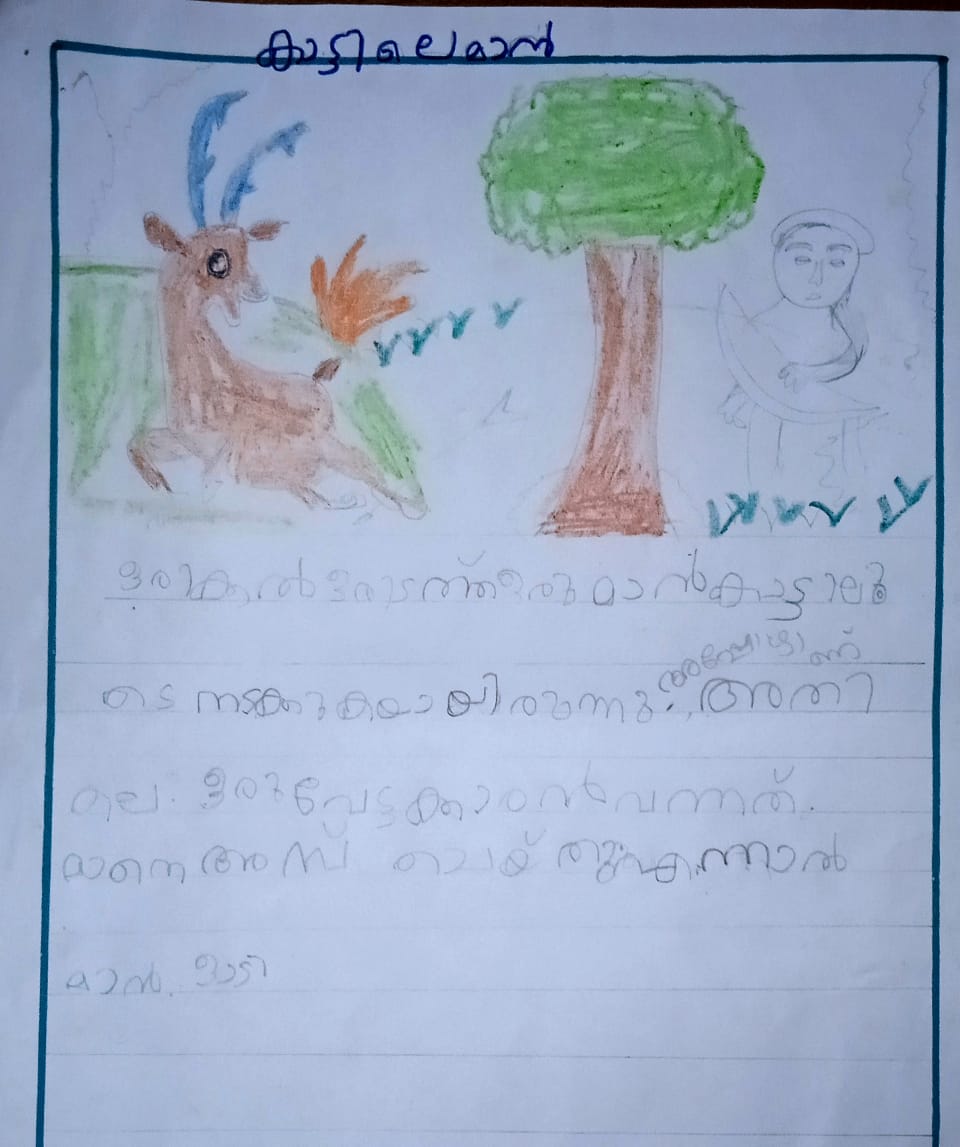 കാട്ടിലെ മാൻ
ഒരിക്കൽ ഒരിടത്ത് ഒരു മാൻ കാട്ടാലൂ
ടെ നടക്കുകയായിരുന്നു. അപ്പോഴാണ് അതി
ലെ ഒരു വേട്ടക്കാരൻ വന്നത്.
മാനെ അമ്പ് െയ്തു എന്നാൽ
മാൻ. ഓടി